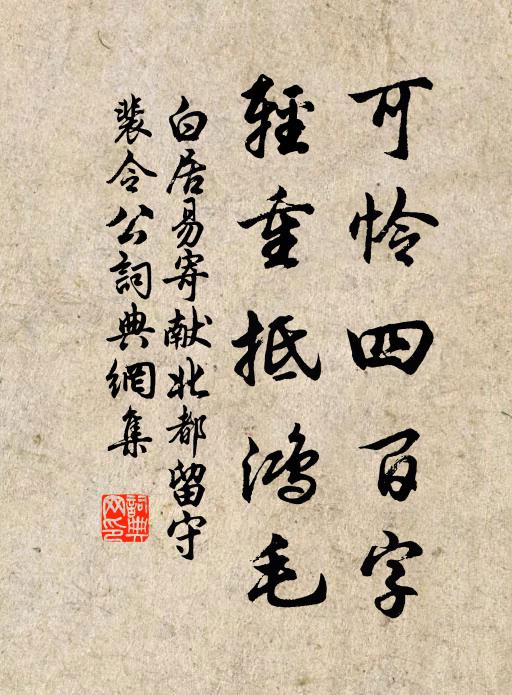 可怜四百字
轻重抵鸿毛
白居易寄献北都留守
裴令公詞典網集
詞典网印